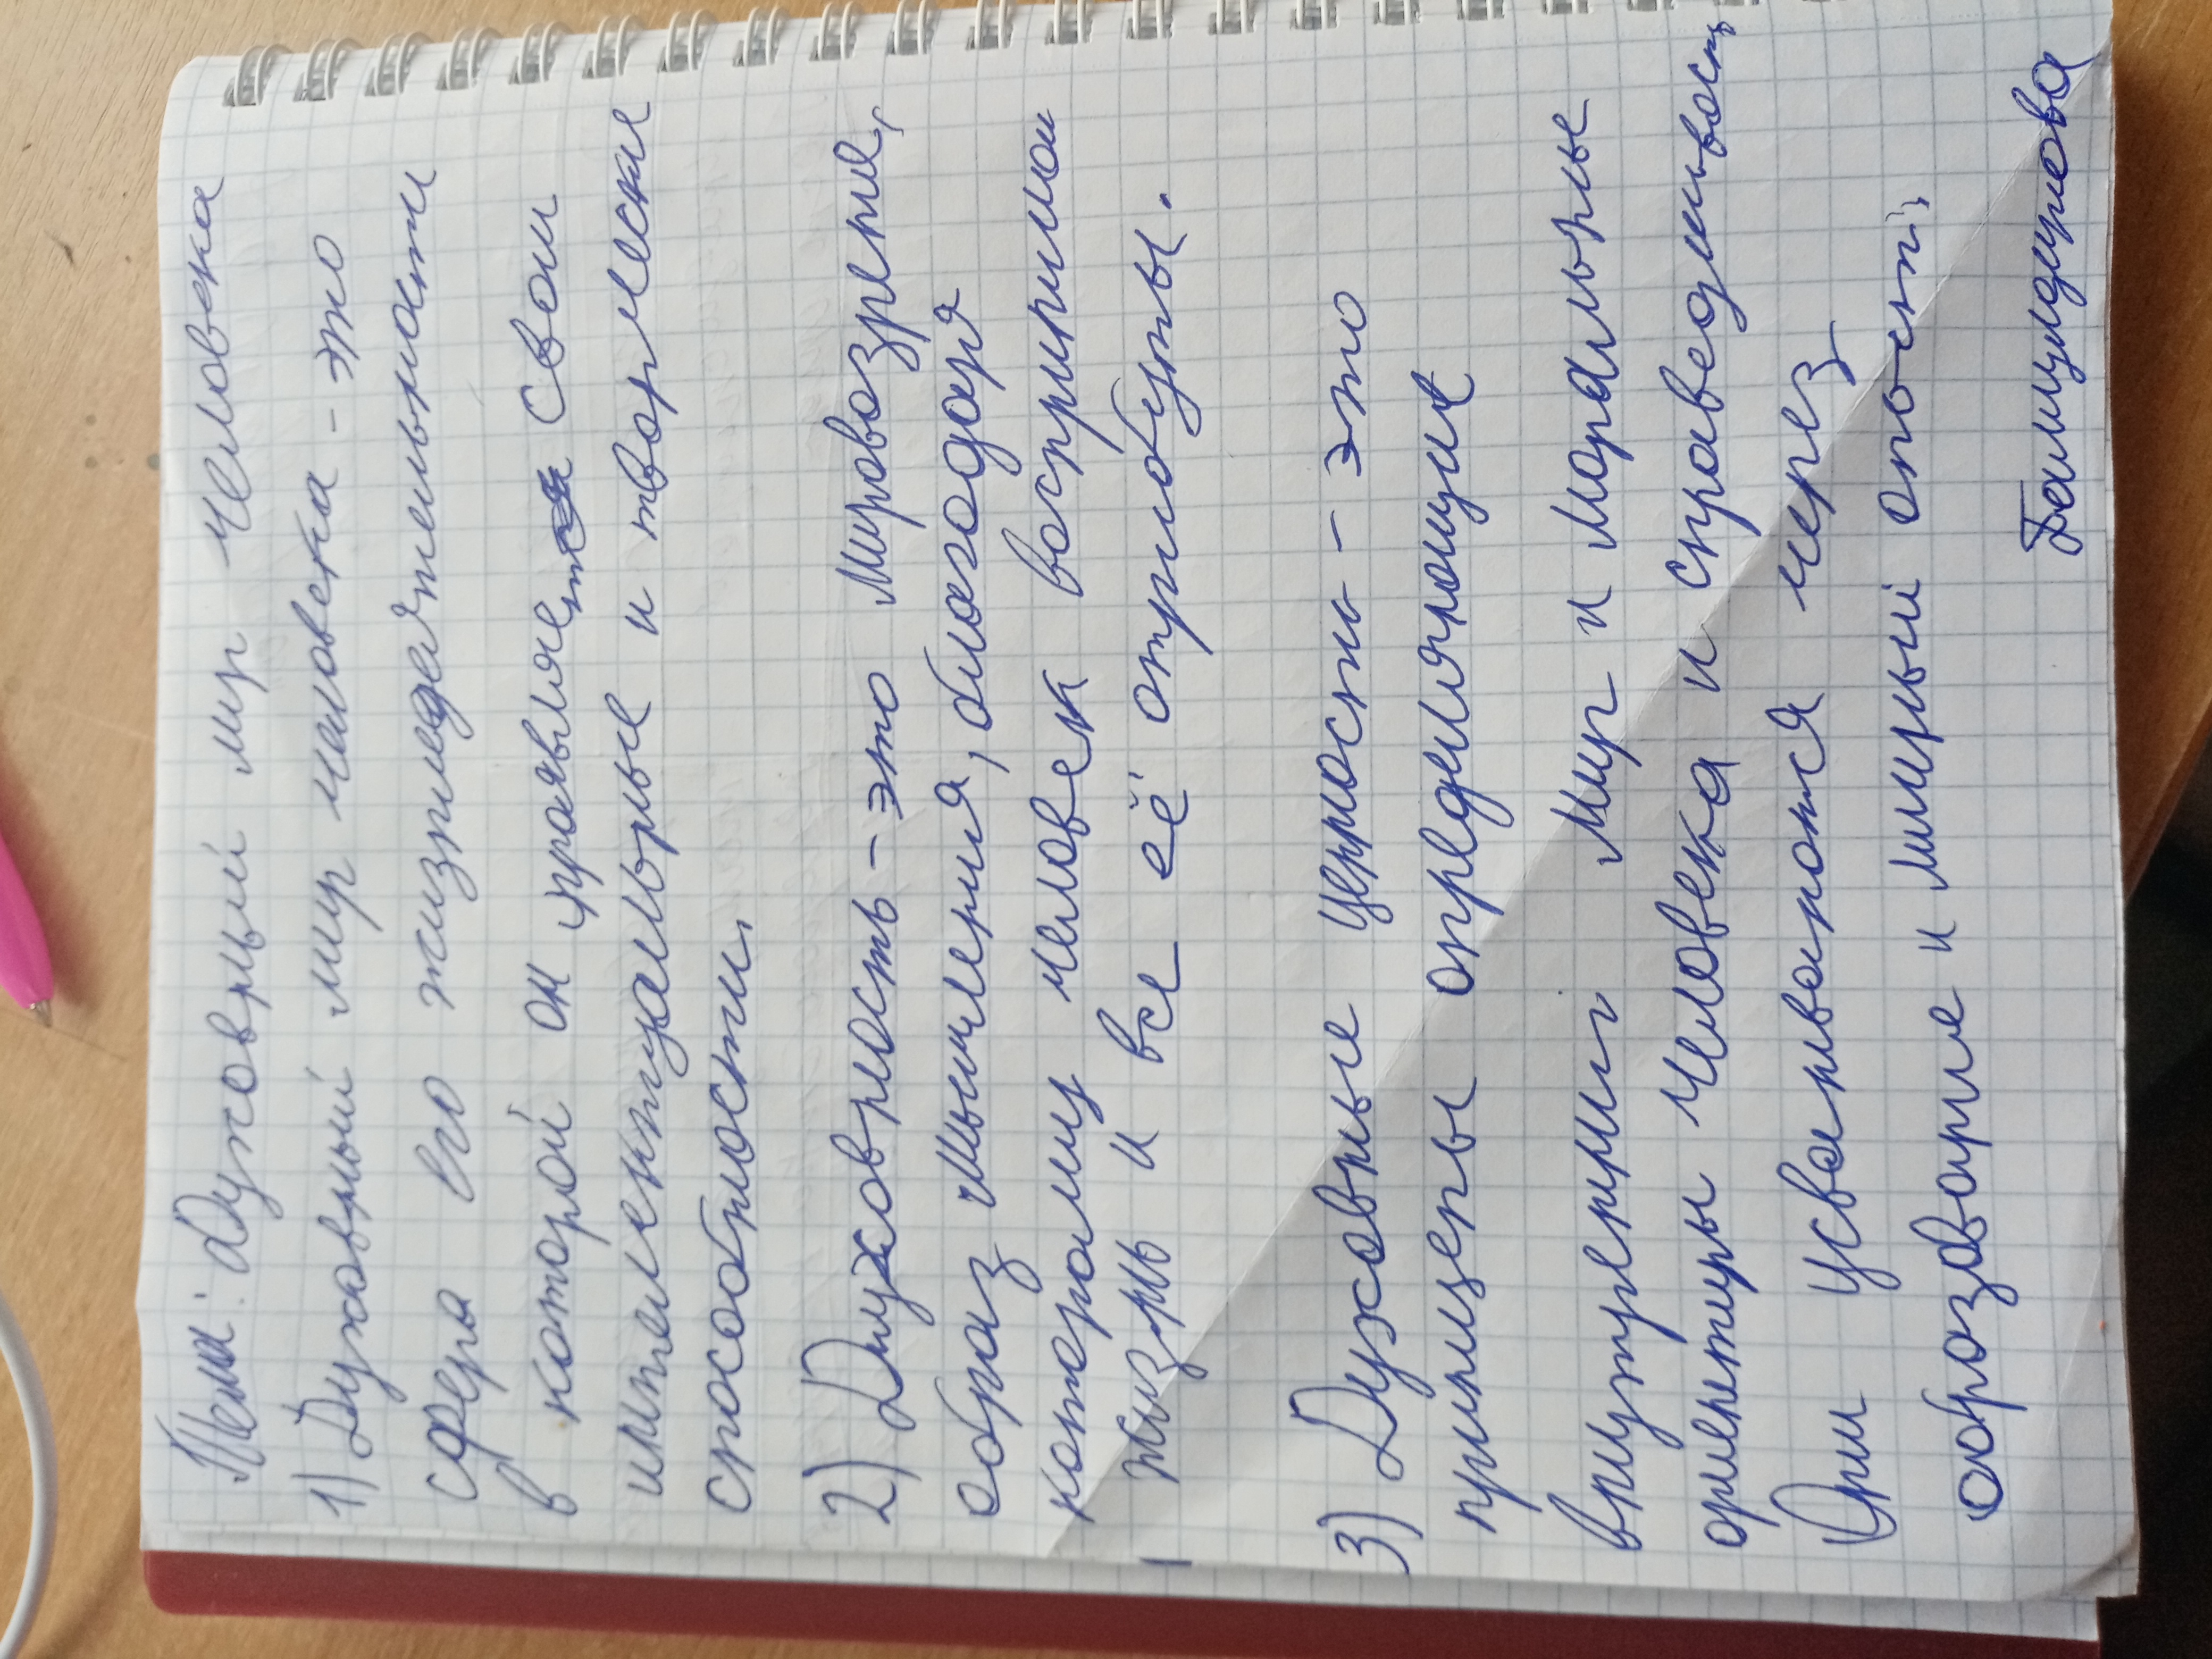 Тема: Духовный мир человека
1) Духовный мир человека - это
сфера его жизнедеятельности
в которой он проявляет свои
интелектуальные и творческие
способности.
2) Духовность - это мировозрение,
образ мышления, благодаря
которому человек воспринимой
жизнь и все её отрибуты.
3) Духовные ценности - это
принцепы определяющие
внутренний мир и моральные
орентиры человека и справедливость
Они усваиваются через
образование и личный опост,
Балицлдинова